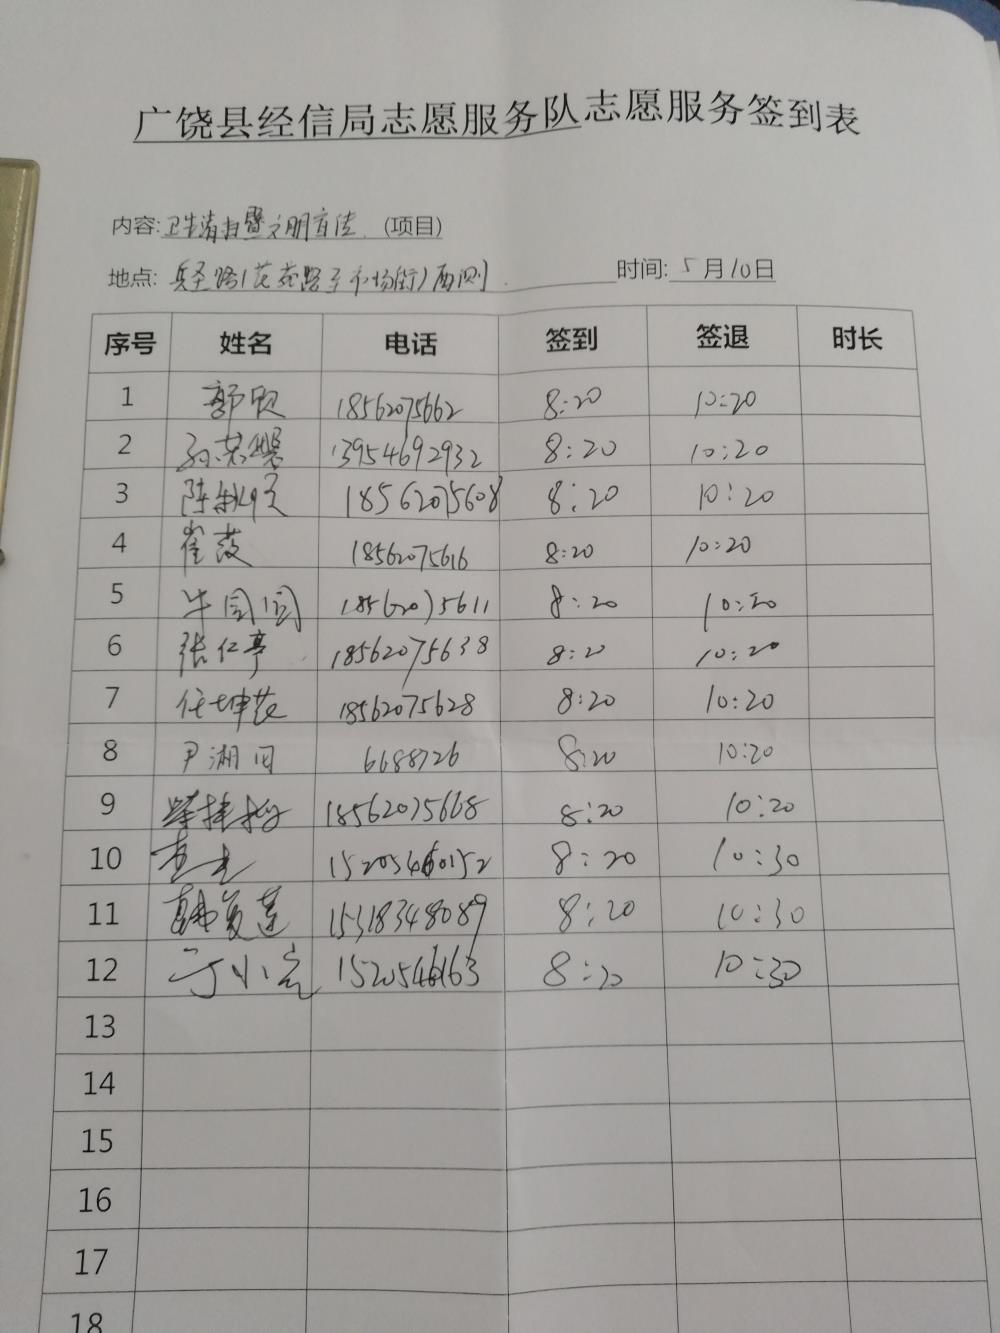 广饶县经信局志愿服务队志愿服务签到表
内容:卫生清扫暨文明宣传 (项目)
地点: 兵圣路(花苑路至市场街)西侧 时间: 5月10日
序号 姓名 电话 签到 签退 时长
1 郭欣 18562075662 8:20 10:20
2 孙 13954692932 8:20 10:20
3 陈 18562075608 8:20 10:20
4 崔霞 18562075616 8:20 10:20
5 牛园园 18562075611 8:20 10:20
6 张仁亭 18562075638 8:20 10:20
7 任坤花 18562075628 8:20 10:20
8 尹湘田 6688726 8:20 10:20
9 18562075668 8:20 10:20
10 8:20 10:30
11 韩复莲 15318348089 8:20 10:30
12 于小 8:20 10:30
13
14
15
16
17
18